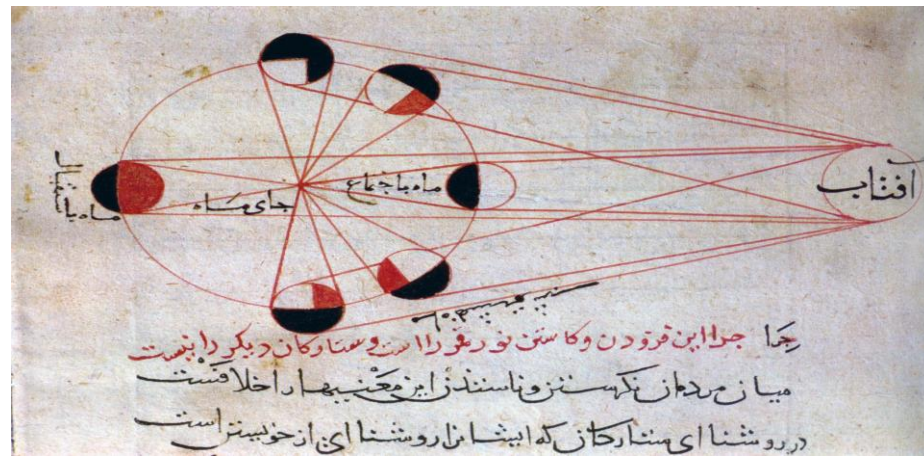 افتاب
ماه باجتماع
جای ماه
ماه باستقبال
جرا این فزودن وکاستن نور قمر را است وستارکان دیکر را نیست
میان مردمان این معنیها را
در روشنا ای ستارکان که ایشانرا روشنا ای از خویشتن است